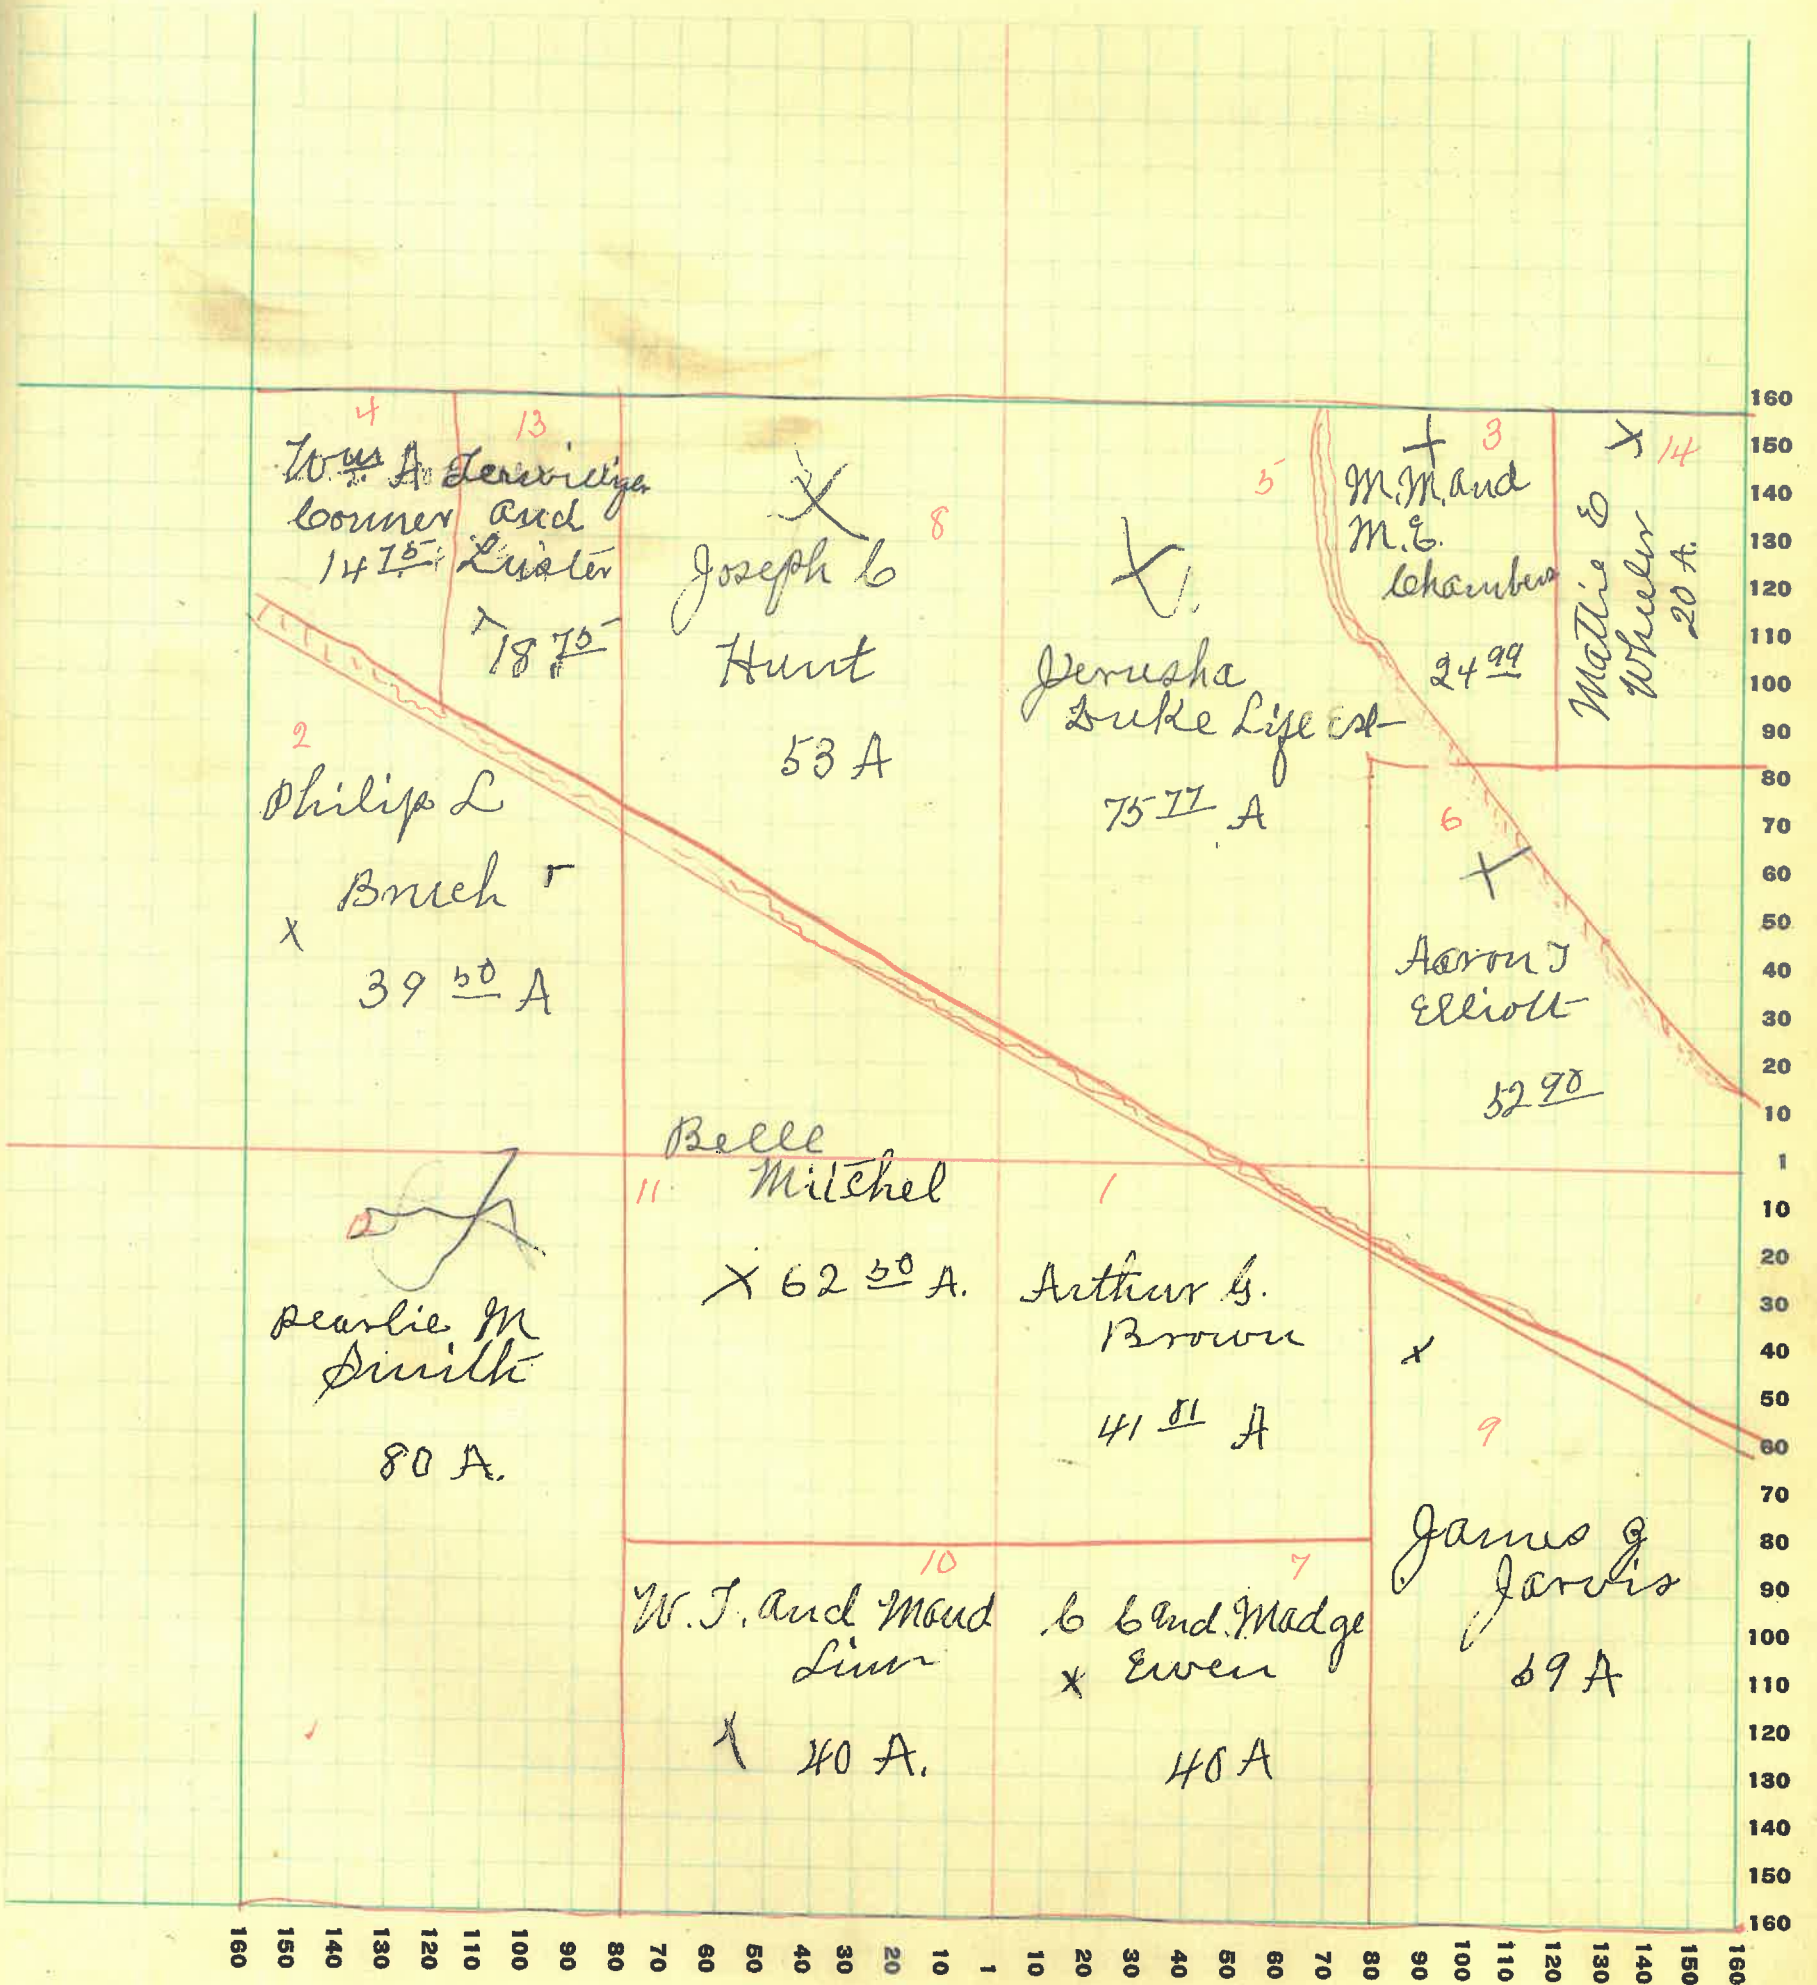 4
Wm. A.
Conner
14 75
13
Terwilliger
and
Luster
18 75
8
Joseph C
Hunt
53 A
5
Jerusha
Duke Life Est
75 77 A
3
M.M. and
M.E.
Chambers
24 99
14
Mattie E
Wheeler
20 A.
2
Philip L
Bruch
39 50 A
6
Aaron T
Elliott
52 90
Pearlie M
Smith
80 A.
11
Belle
Mitchel
62 50 A.
1
Arthur G.
Brown
41 81 A
9
James G
Jarvis
69 A
10
W.T. and Maud
Linn
40 A.
7
C C and Madge
Ewen
40 A
160
150
140
130
120
110
100
90
80
70
60
50
40
30
20
10
1
10
20
30
40
50
60
70
80
90
100
110
120
130
140
150
160
160 150 140 130 120 110 100 90 80 70 60 50 40 30 20 10 1 10 20 30 40 50 60 70 80 90 100 110 120 130 140 150 160